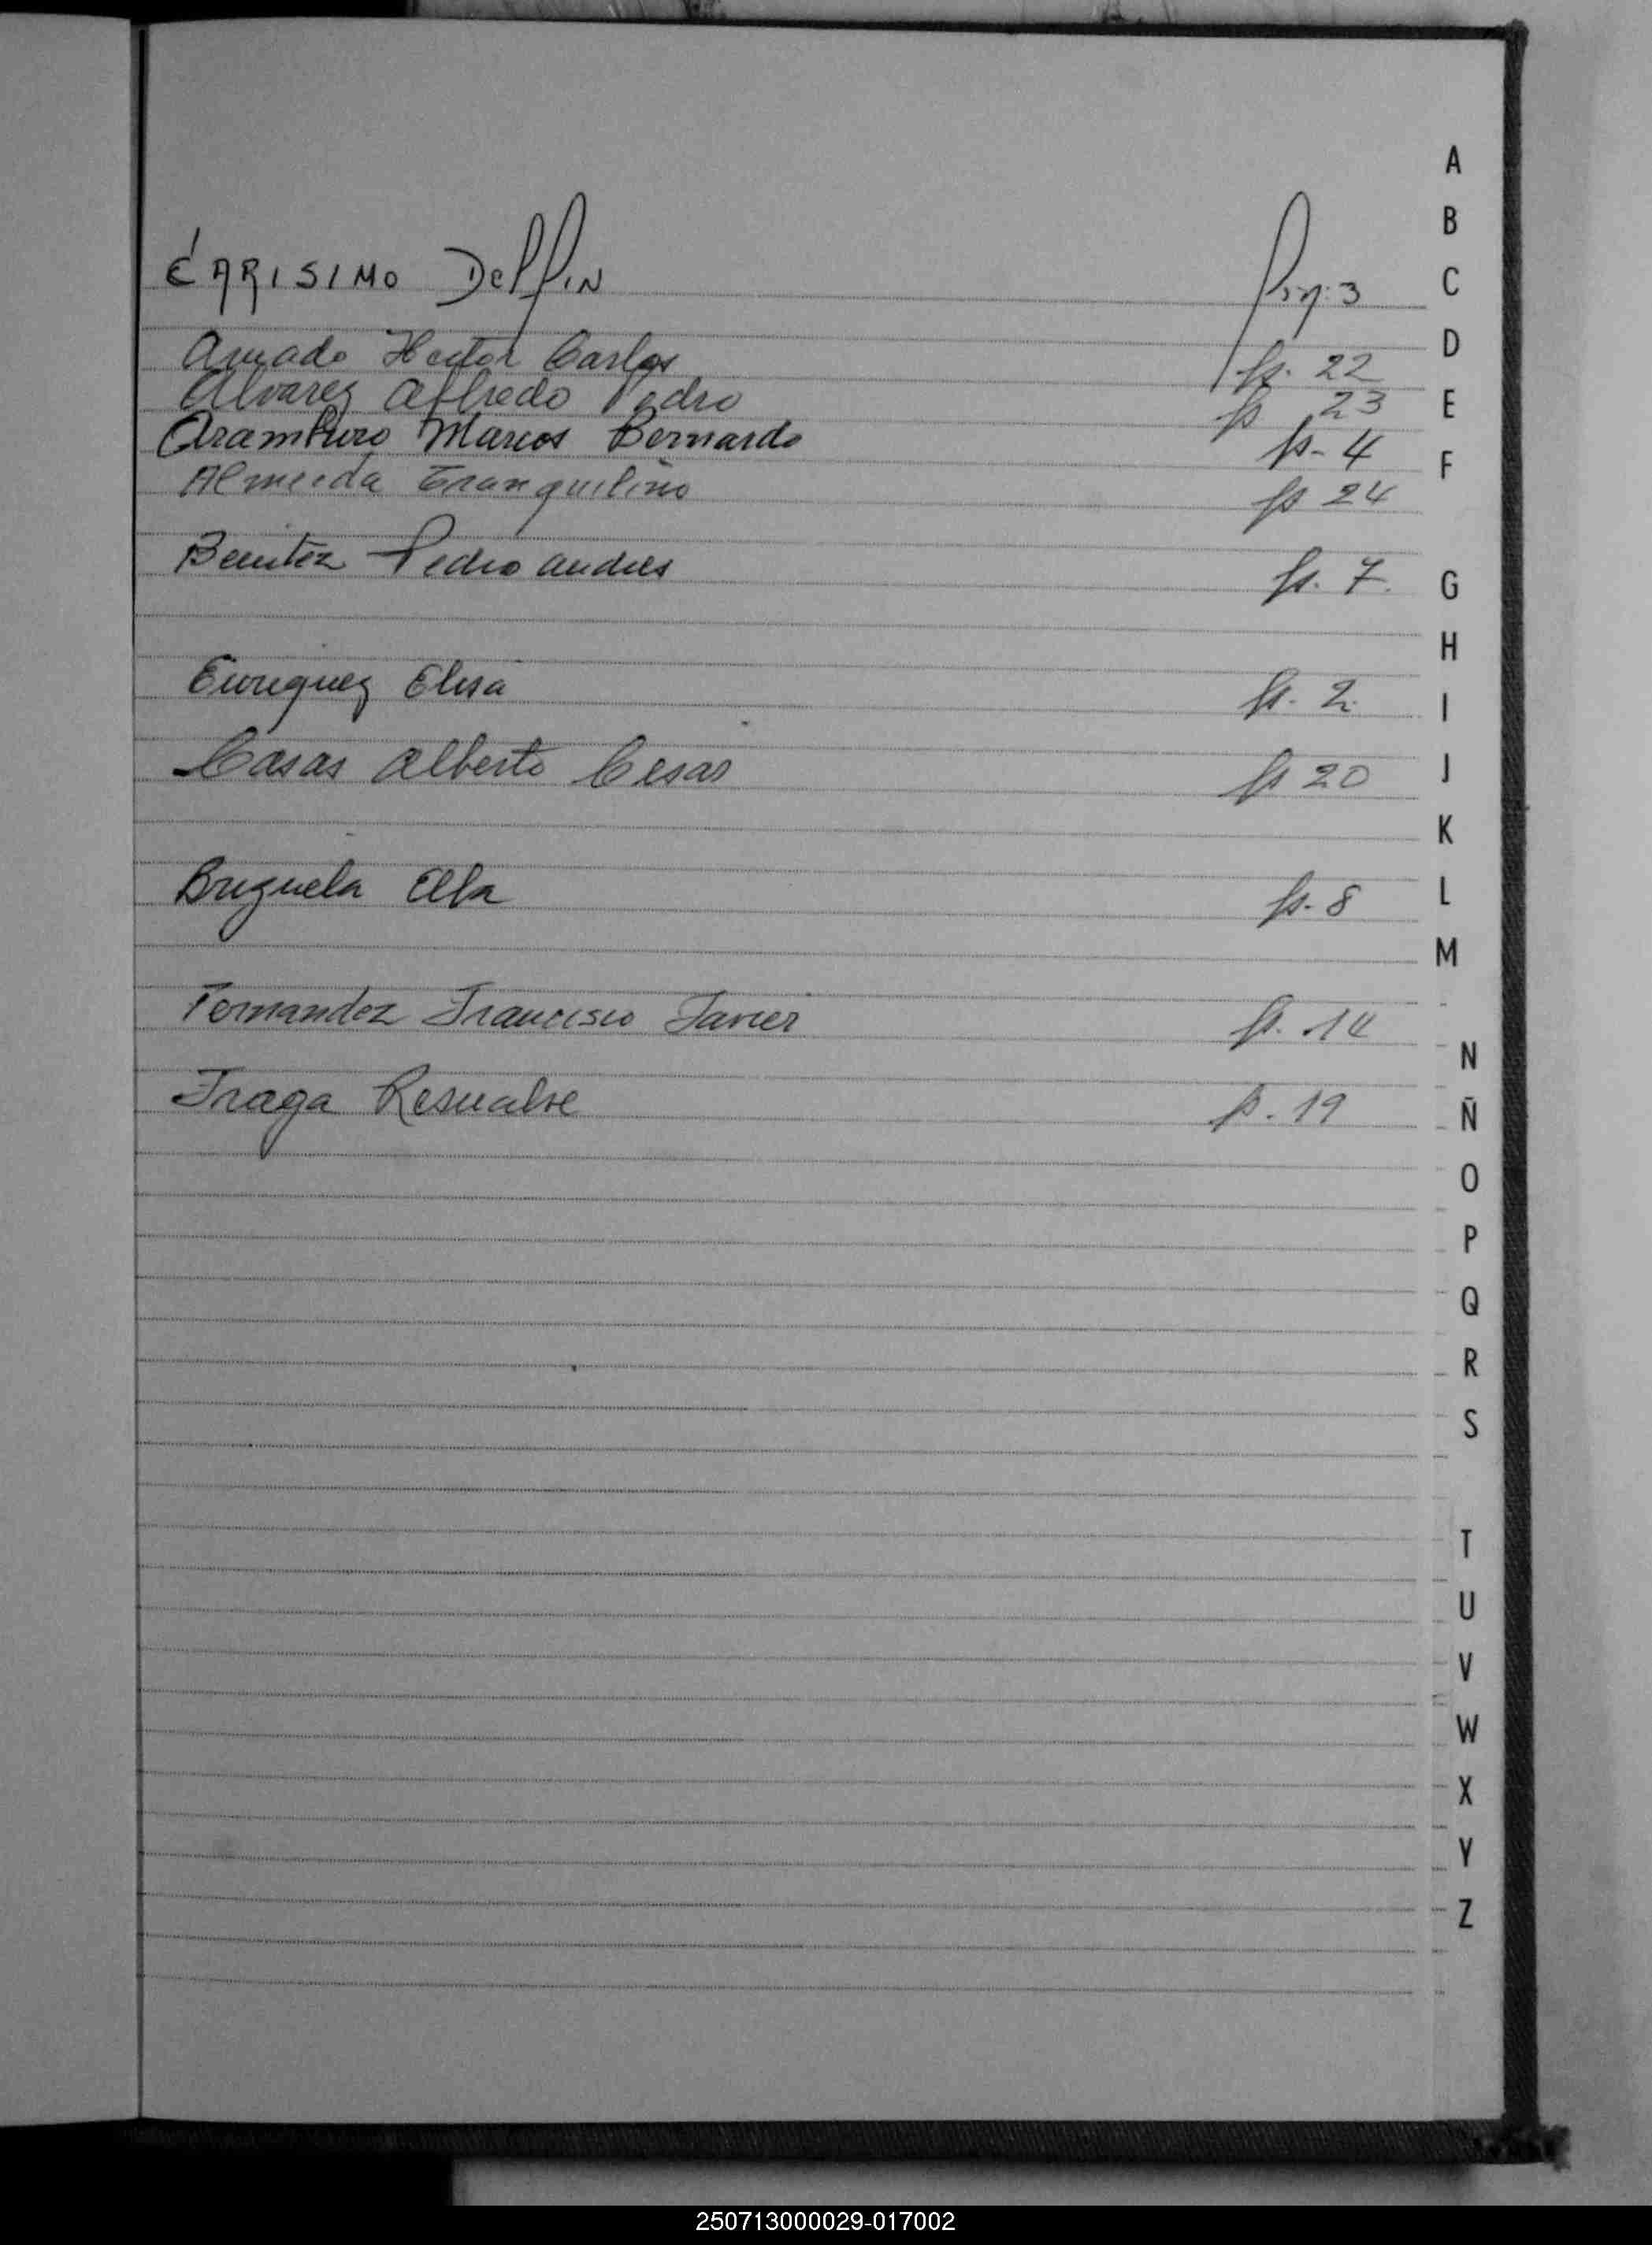 CARISIMO DelfIN Pag: 3
Amado Hector Carlos fs. 22
Alvarez Alfredo Pedro fs 23
Aramburo Marcos Bernardo fs- 4
Almeida Tranquilino fs 24
Benitez Pedro Andres fs. 7.
Enriquez Elisa fs. 2.
Casas Alberto Cesar fs 20
Brizuela Elba fs. 8
Fernandez Francisco Javier fs. 14
Fraga fs. 19
A
B
C
D
E
F
G
H
I
J
K
L
M
N
Ñ
O
P
Q
R
S
T
U
V
W
X
Y
Z
250713000029-017002